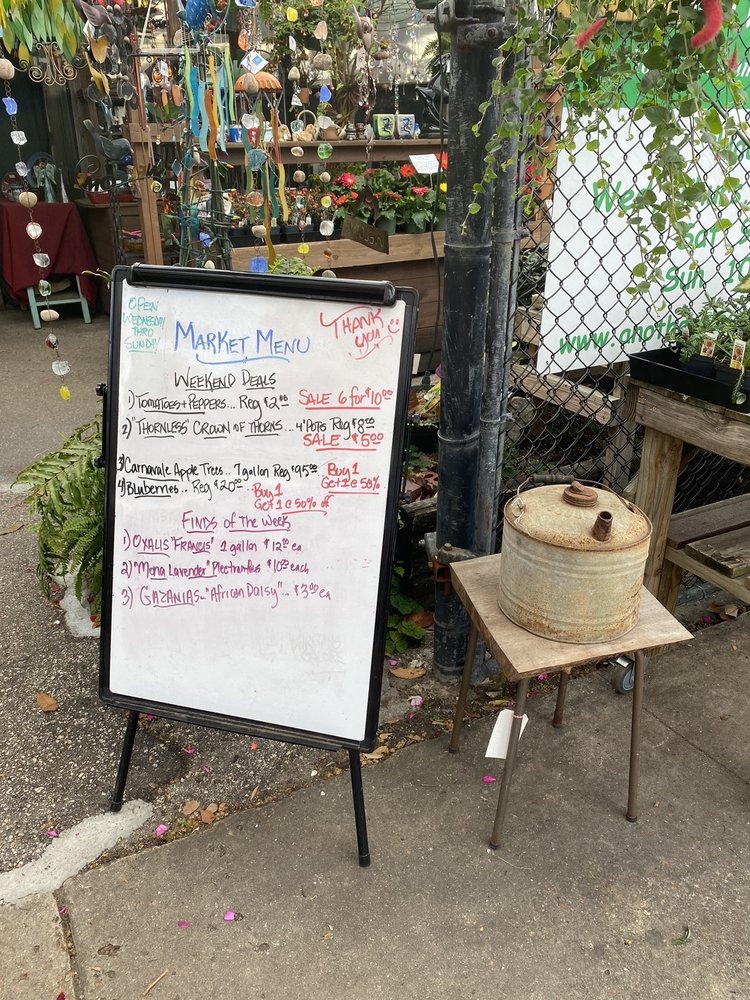 OPEN
WEDNESDAY
THRU
SUNDAY
MARKET MENU
THANK
YOU!
WEEKEND DEALS
1) TOMATOES + PEPPERS... Reg $2.00 SALE 6 for $10.00
2) "THORNLESS" CROWN OF THORNS... 4" POTS Reg $8.00
SALE $5.00
3) Carnavale Apple Trees.. 7 gallon Reg $95.00 Buy 1
Get 1 @ 50%
4) Bluberries... Reg $20.00.. Buy 1
Get 1 @ 50% off
FINDS of the WEEK
1) OXALIS "FRANCIS" 1 gallon $12.00 ea
2) "Mona Lavender" Plecthranthus $10.00 each
3) GAZANIAS - "African Daisy"... $3.00 ea
Sat
Sun 10
www.anoth